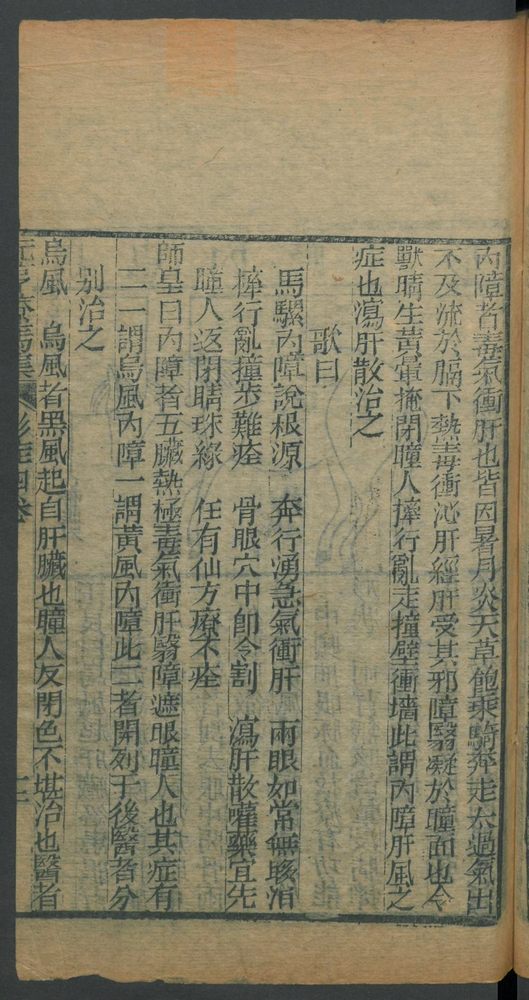 內障者毒氣衝肝也皆因暑月炎天草飽乘騎奔走太過氣出
不及流於膈下熱毒衝沁肝經肝受其邪障翳凝於瞳面也令
獸睛生黃暈掩閉瞳人擇行亂走撞壁衝墻此謂內障肝風之
症也瀉肝散治之
歌曰
馬騾內障說根源 奔行湧急氣衝肝 兩眼如常無睒
擇行亂撞步難痊 骨眼穴中卽令割 瀉肝散嚾藥宜先
瞳人返閉睛珠綠 任有仙方療不痊
師皇曰內障者五臟熱極毒氣衝肝翳障遮眼瞳人也其症有
二一謂烏風內障一謂黃風內障此二者開列于後醫者分
別治之
烏風 烏風者黑風起自肝臟也瞳人反閉色不堪治也醫者
療馬集 四卷